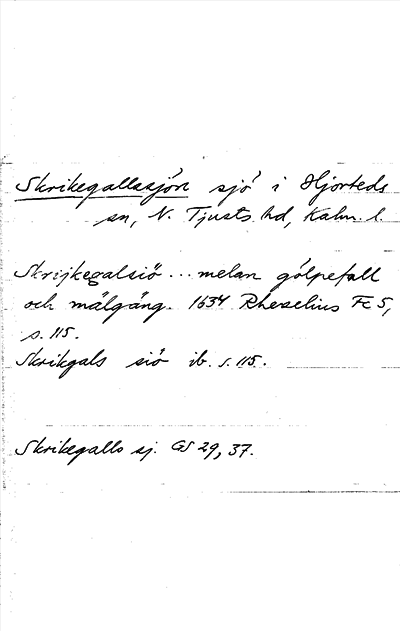 Skrikegallssjön sjö i Hjorteds
sn, N. Tjusts hd, Kalm. l.
Skrijkegalsiö ... melan gölpefall
och målgång. 1634 Rheselius Fc 5,
s. 115.
Skrikgals siö ib. s. 115.
Skrikegalls sj. GS 29, 37.